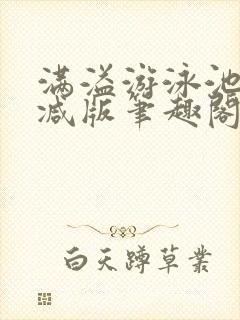 满溢游泳池
减版笔趣阁
白天蹲草丛